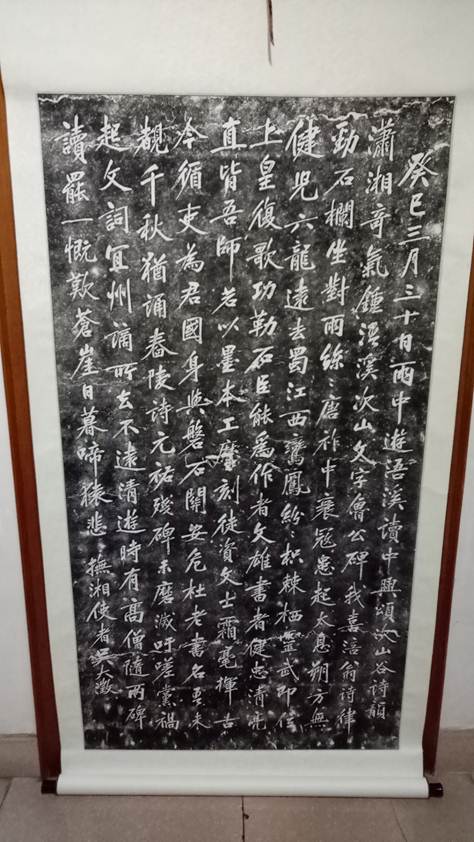 癸巳三月三十日雨中遊浯溪讀中興頌次山谷詩韻
瀟湘奇氣鍾浯溪次山文字魯公碑我喜涪翁詩律
勁石欄坐對雨絲絲唐祚中衰寇患起太息朔方無
健兒六龍遠去蜀江西鸞鳳紛紛枳棘栖靈武即位
上皇復歌功勒石臣能為作者文雄書者健忠清亮
直皆吾師若以墨本工摩刻徒資文士霜毫揮古
今循吏為君國身與磐石關安危杜老書名吾未
覩千秋猶誦舂陵詩元祐殘碑未磨滅吁嗟黨禍
起文詞宜州謫所去不遠清遊時有高僧隨兩碑
讀罷一慨歎蒼崖日暮啼猿悲 撫湘使者吳大澂